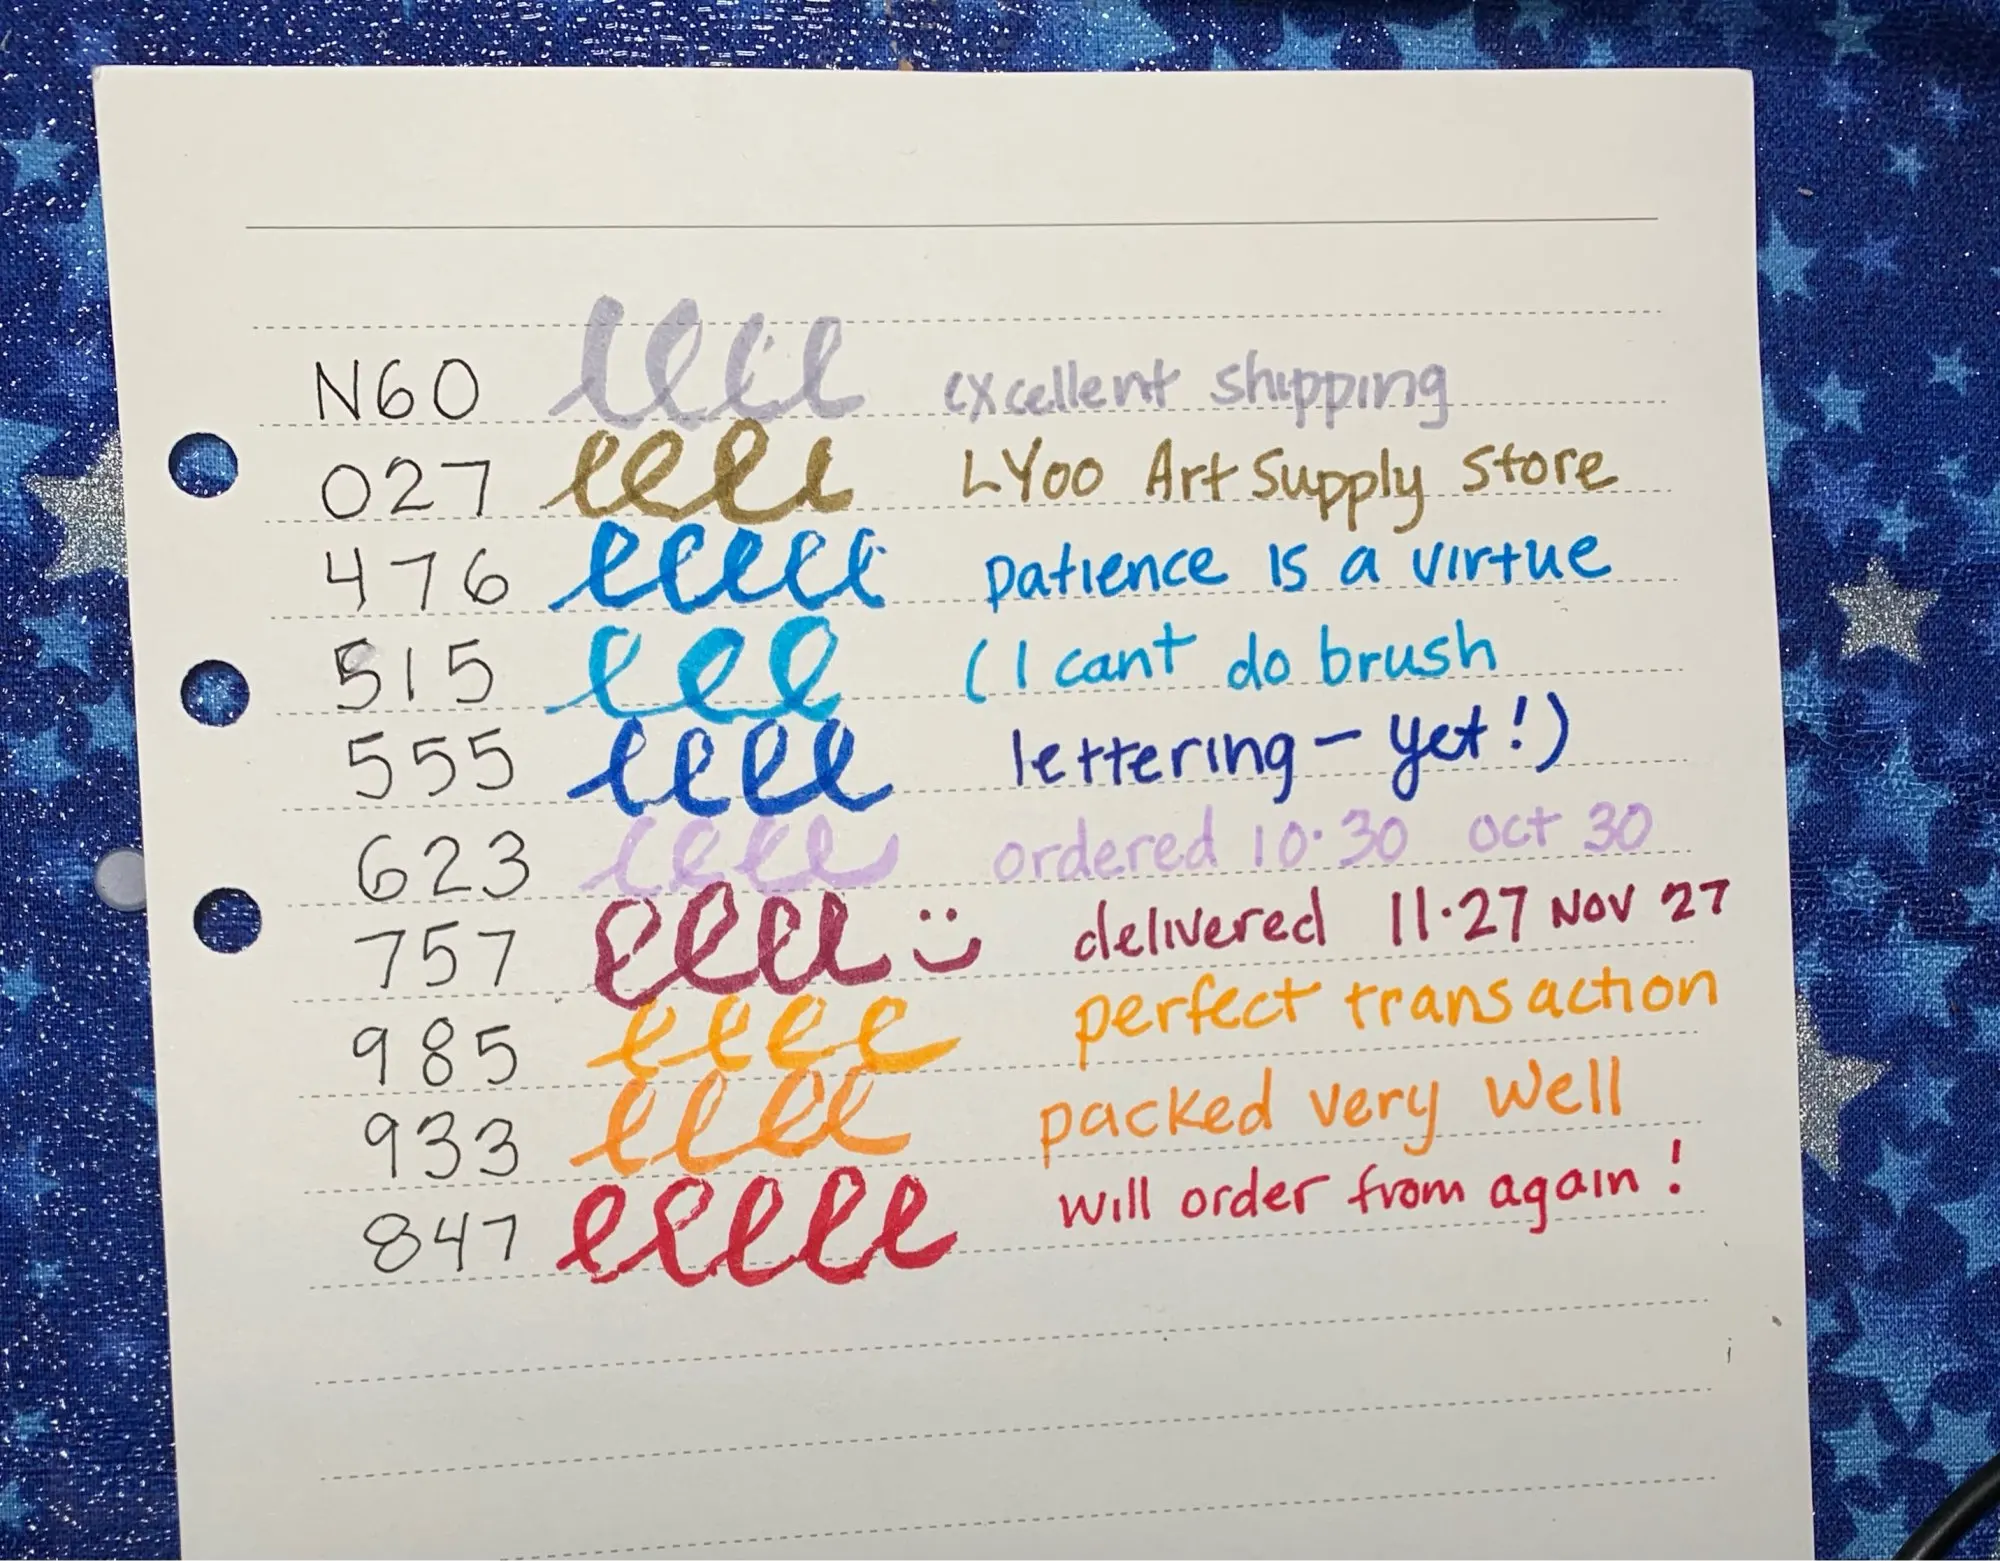 N60 llll excellent shipping
027 llll LYoo Art Supply Store
476 lllll patience is a virtue
515 lll (I cant do brush
555 llll lettering - yet!)
623 llll ordered 10.30 oct 30
757 llll :) delivered 11.27 NOV 27
985 llll perfect transaction
933 llll packed very well
847 lllll will order from again!